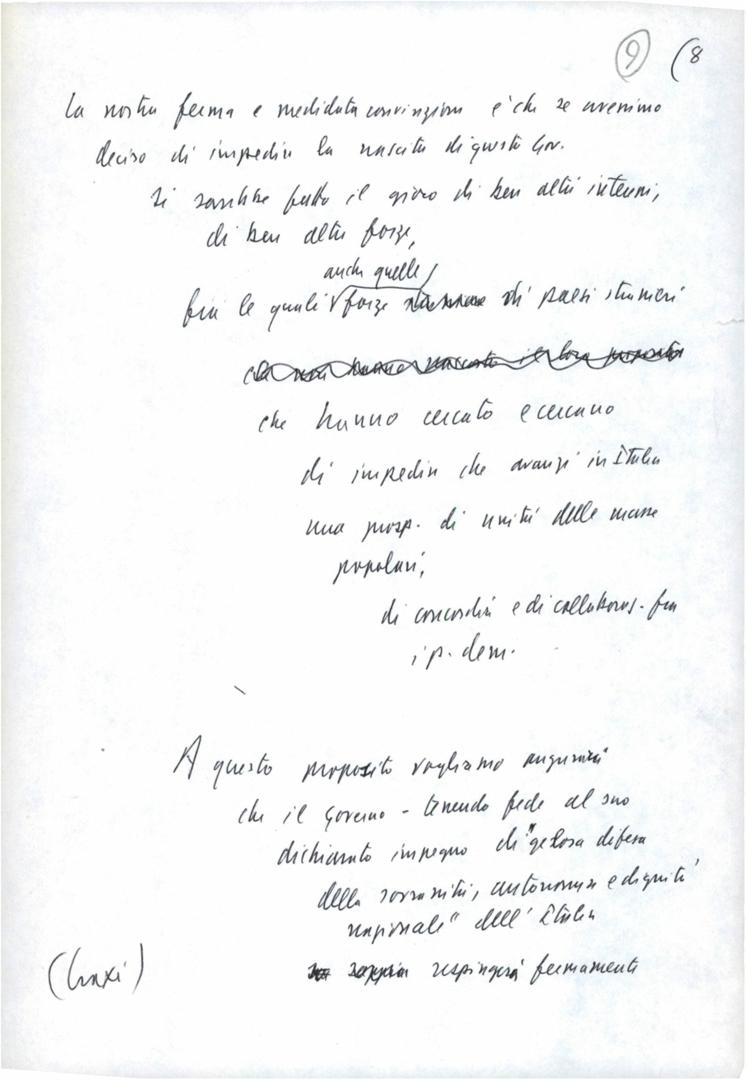 9 (8
La nostra ferma e meditata convinzione è che se avessimo
deciso di impedire la nascita di questo Gov.
si sarebbe fatto il gioco di ben altri interessi,
di ben altre forze,
anche quelle
fra le quali forze di paesi stranieri
che hanno cercato e cercano
di impedire che avanzi in Italia
una prosp. di unità delle masse
popolari,
di concordia e di collaboraz. fra
i p. dem.
A questo proposito vogliamo augurarci
che il Governo - tenendo fede al suo
dichiarato impegno di "gelosa difesa
della sovranità, autonomia e dignità
nazionale" dell'Italia
respingerà fermamente